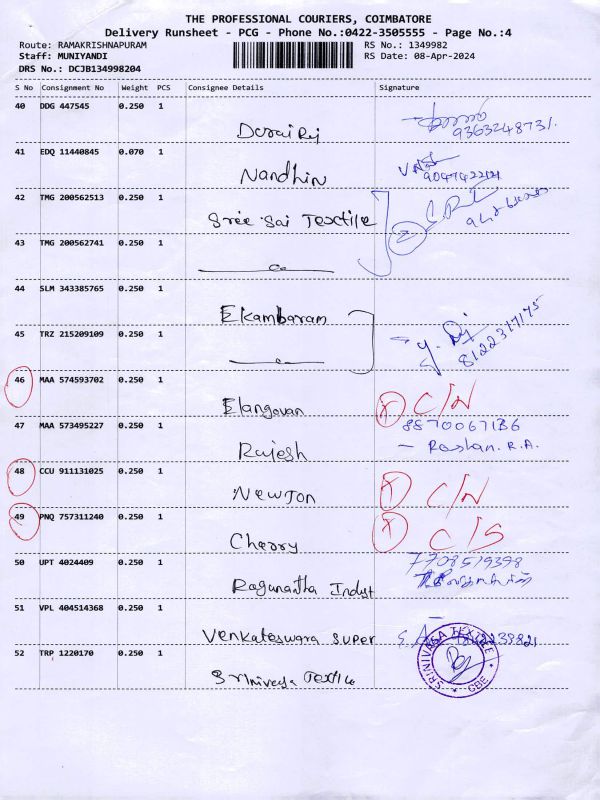 THE PROFESSIONAL COURIERS, COIMBATORE
Delivery Runsheet - PCG - Phone No.:0422-3505555 - Page No.:4
Route: RAMAKRISHNAPURAM RS No.: 1349982
Staff: MUNIYANDI RS Date: 08-Apr-2024
DRS No.: DCJB134998204
S No Consignment No Weight PCS Consignee Details Signature
40 DDG 447545 0.250 1 Durai Raj
9363248731.
41 EDQ 11440845 0.070 1 Nandhin
42 TMG 200562513 0.250 1 Sree Sai Textile
2
43 TMG 200562741 0.250 1
44 SLM 343385765 0.250 1 Ekambaram
45 TRZ 215209109 0.250 1
8122317175
46 MAA 574593702 0.250 1 Elangovan X C/N
47 MAA 573495227 0.250 1 Rajesh 8570067136
- Roshan. R.A.
48 CCU 911131025 0.250 1 Newton X C/N
49 PNQ 757311240 0.250 1 Cherry X C/S
50 UPT 4024409 0.250 1 Ragunantha Indust 7708519398
51 VPL 404514368 0.250 1 Venkateswara Super
52 TRP 1220170 0.250 1 Srinivasa Textile
SRINIVAGA TEXTILE
CBE